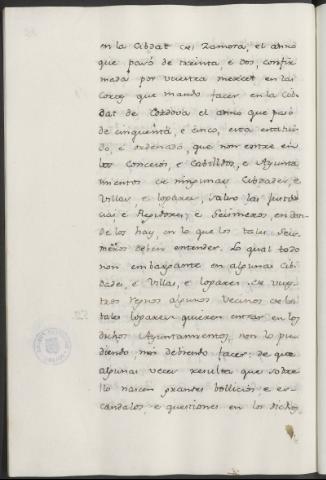 en la Cibdat de Zamora, el anno
que pasó de treinta, e dos, confir
mada por vuestra mercet en las
Cortes que mando facer en la cib
dat de Cordova el anno que pasó
de cinquenta, e cinco, esta estatui
do, e ordenado, que non entre en
los Concejos, e Cabilldos, e Ayunta
mientos de ningunas Cibdades, e
Villas, e logares, salvo las Justi
cias, e Regidores, e Seismeros, en don
de los hay, en lo que los tales Seis
meros deben entender. Lo qual todo
non embargante en algunas Cib
dades, e Villas, e logares de vues
tros regnos algunos Vecinos de los
tales logares quieren entrar en los
dichos Ayuntamientos, non lo pu
diendo, nin debiendo facer: de que
algunas veces resulta que sobre
llo nascen grandes bollicios, e es
candalos, e questiones en los dichos